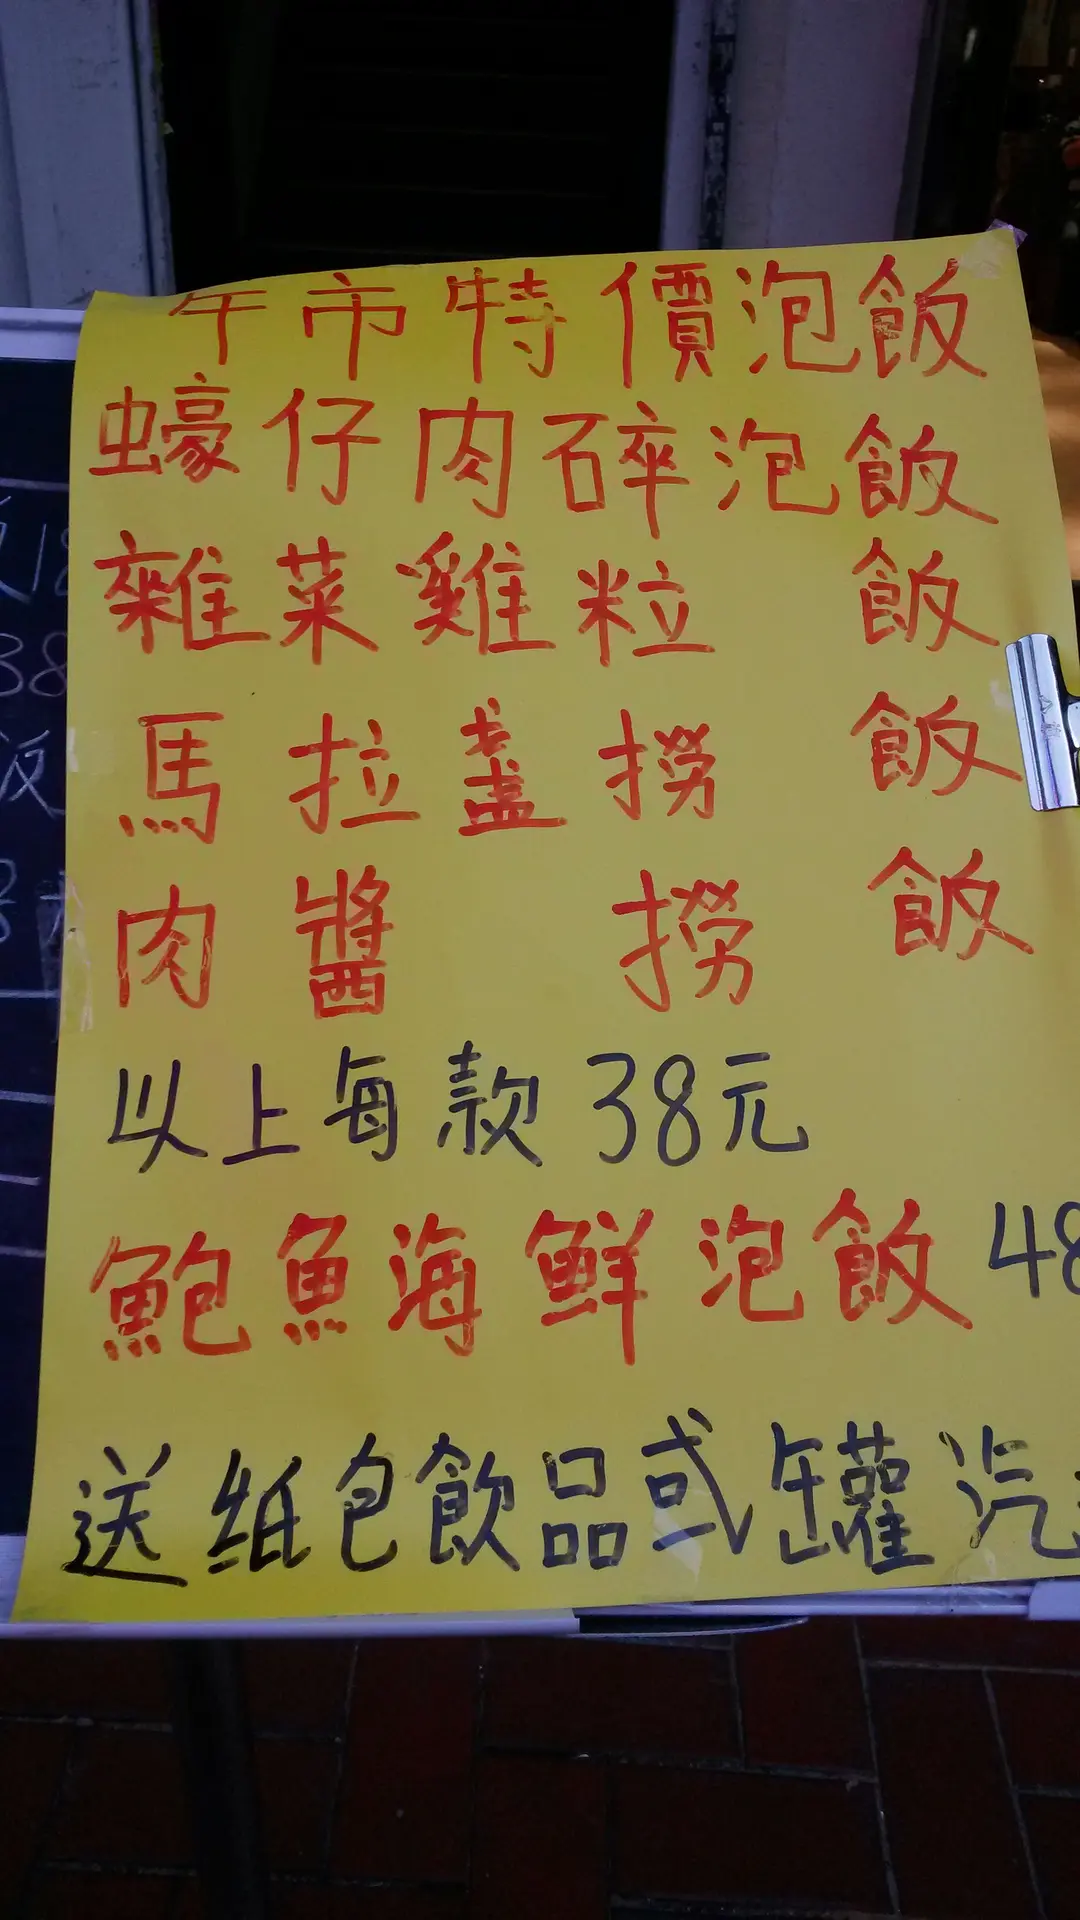 午市特價泡飯
蠔仔肉碎泡飯
雜菜雞粒 飯
馬拉盞撈 飯
肉醬 撈 飯
以上每款 38元
鮑魚海鮮泡飯 48
送紙包飲品或罐汽